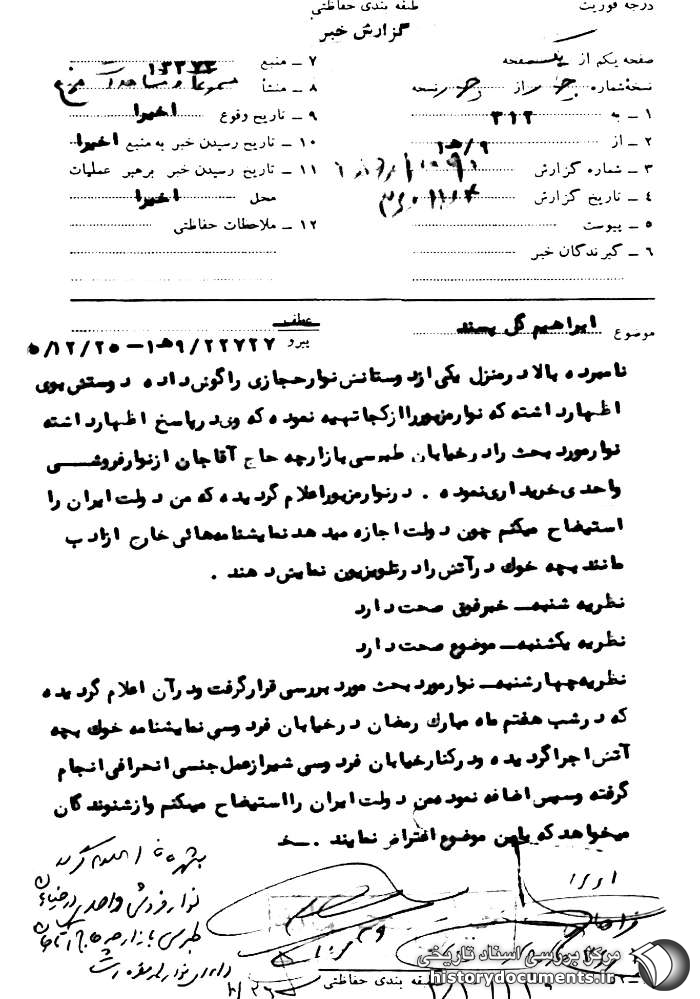 درجه فوریت
طبقه بندی حفاظتی
گزارش خبر
صفحه یکم از یک صفحه
نسخهٔ شماره از نسخه
۱ ـ به ۳۱۲
۲ ـ از ۹/ﻫ۱
۳ ـ شماره گزارش
۴ ـ تاریخ گزارش
۵ ـ پیوست
۶ ـ گیرندگان خبر
۷ ـ منبع ۱۳۳۷۴
۸ ـ منشأ
۹ ـ تاریخ وقوع اخیرا
۱۰ ـ تاریخ رسیدن خبر به منبع اخیرا
۱۱ ـ تاریخ رسیدن خبر برهبر عملیات
محل اخیرا
۱۲ ـ ملاحظات حفاظتی
موضوع ابراهیم گل پسند
عطف
پیرو ۲۲۷۲۷/۹ﻫ۱ـ۲۵/۱۲/۵
نامبرده بالا در منزل یکی از دوستانش نوار حجازی را گوش داده دوستش بوی
اظهار داشته که نوار مزبور را از کجا تهیه نموده که وی در پاسخ اظهار داشته
نوار مورد بحث را در خیابان طبرسی بازارچه حاج آقاجان از نوار فروشی
واحدی خریداری نموده . در نوار مزبور اعلام گردیده که من دولت ایران را
استیضاح میکنم چون دولت اجازه میدهد نمایشنامه‌هائی خارج از ادب
مانند بچه خوك در آتش را در تلویزیون نمایش دهند .
نظریه شنبه ـ خبر فوق صحت دارد
نظریه یکشنبه ـ موضوع صحت دارد
نظریه چهارشنبه ـ نوار مورد بحث مورد بررسی قرار گرفت و در آن اعلام گردیده
که در شب هفتم ماه مبارك رمضان در خیابان فردوسی نمایشنامه خوك بچه
آتش اجرا گردیده و در کنار خیابان فردوسی شیراز عمل جنسی انحرافی انجام
گرفته و سپس اضافه نموده من دولت ایران را استیضاح میکنم و از شنوندگان
میخواهد که باین موضوع اعتراض نمایند .
نوار فروشی واحدی در خیابان
طبرسی بازارچه
طبقه بندی حفاظتی
مرکز بررسی اسناد تاریخی
historydocuments.ir